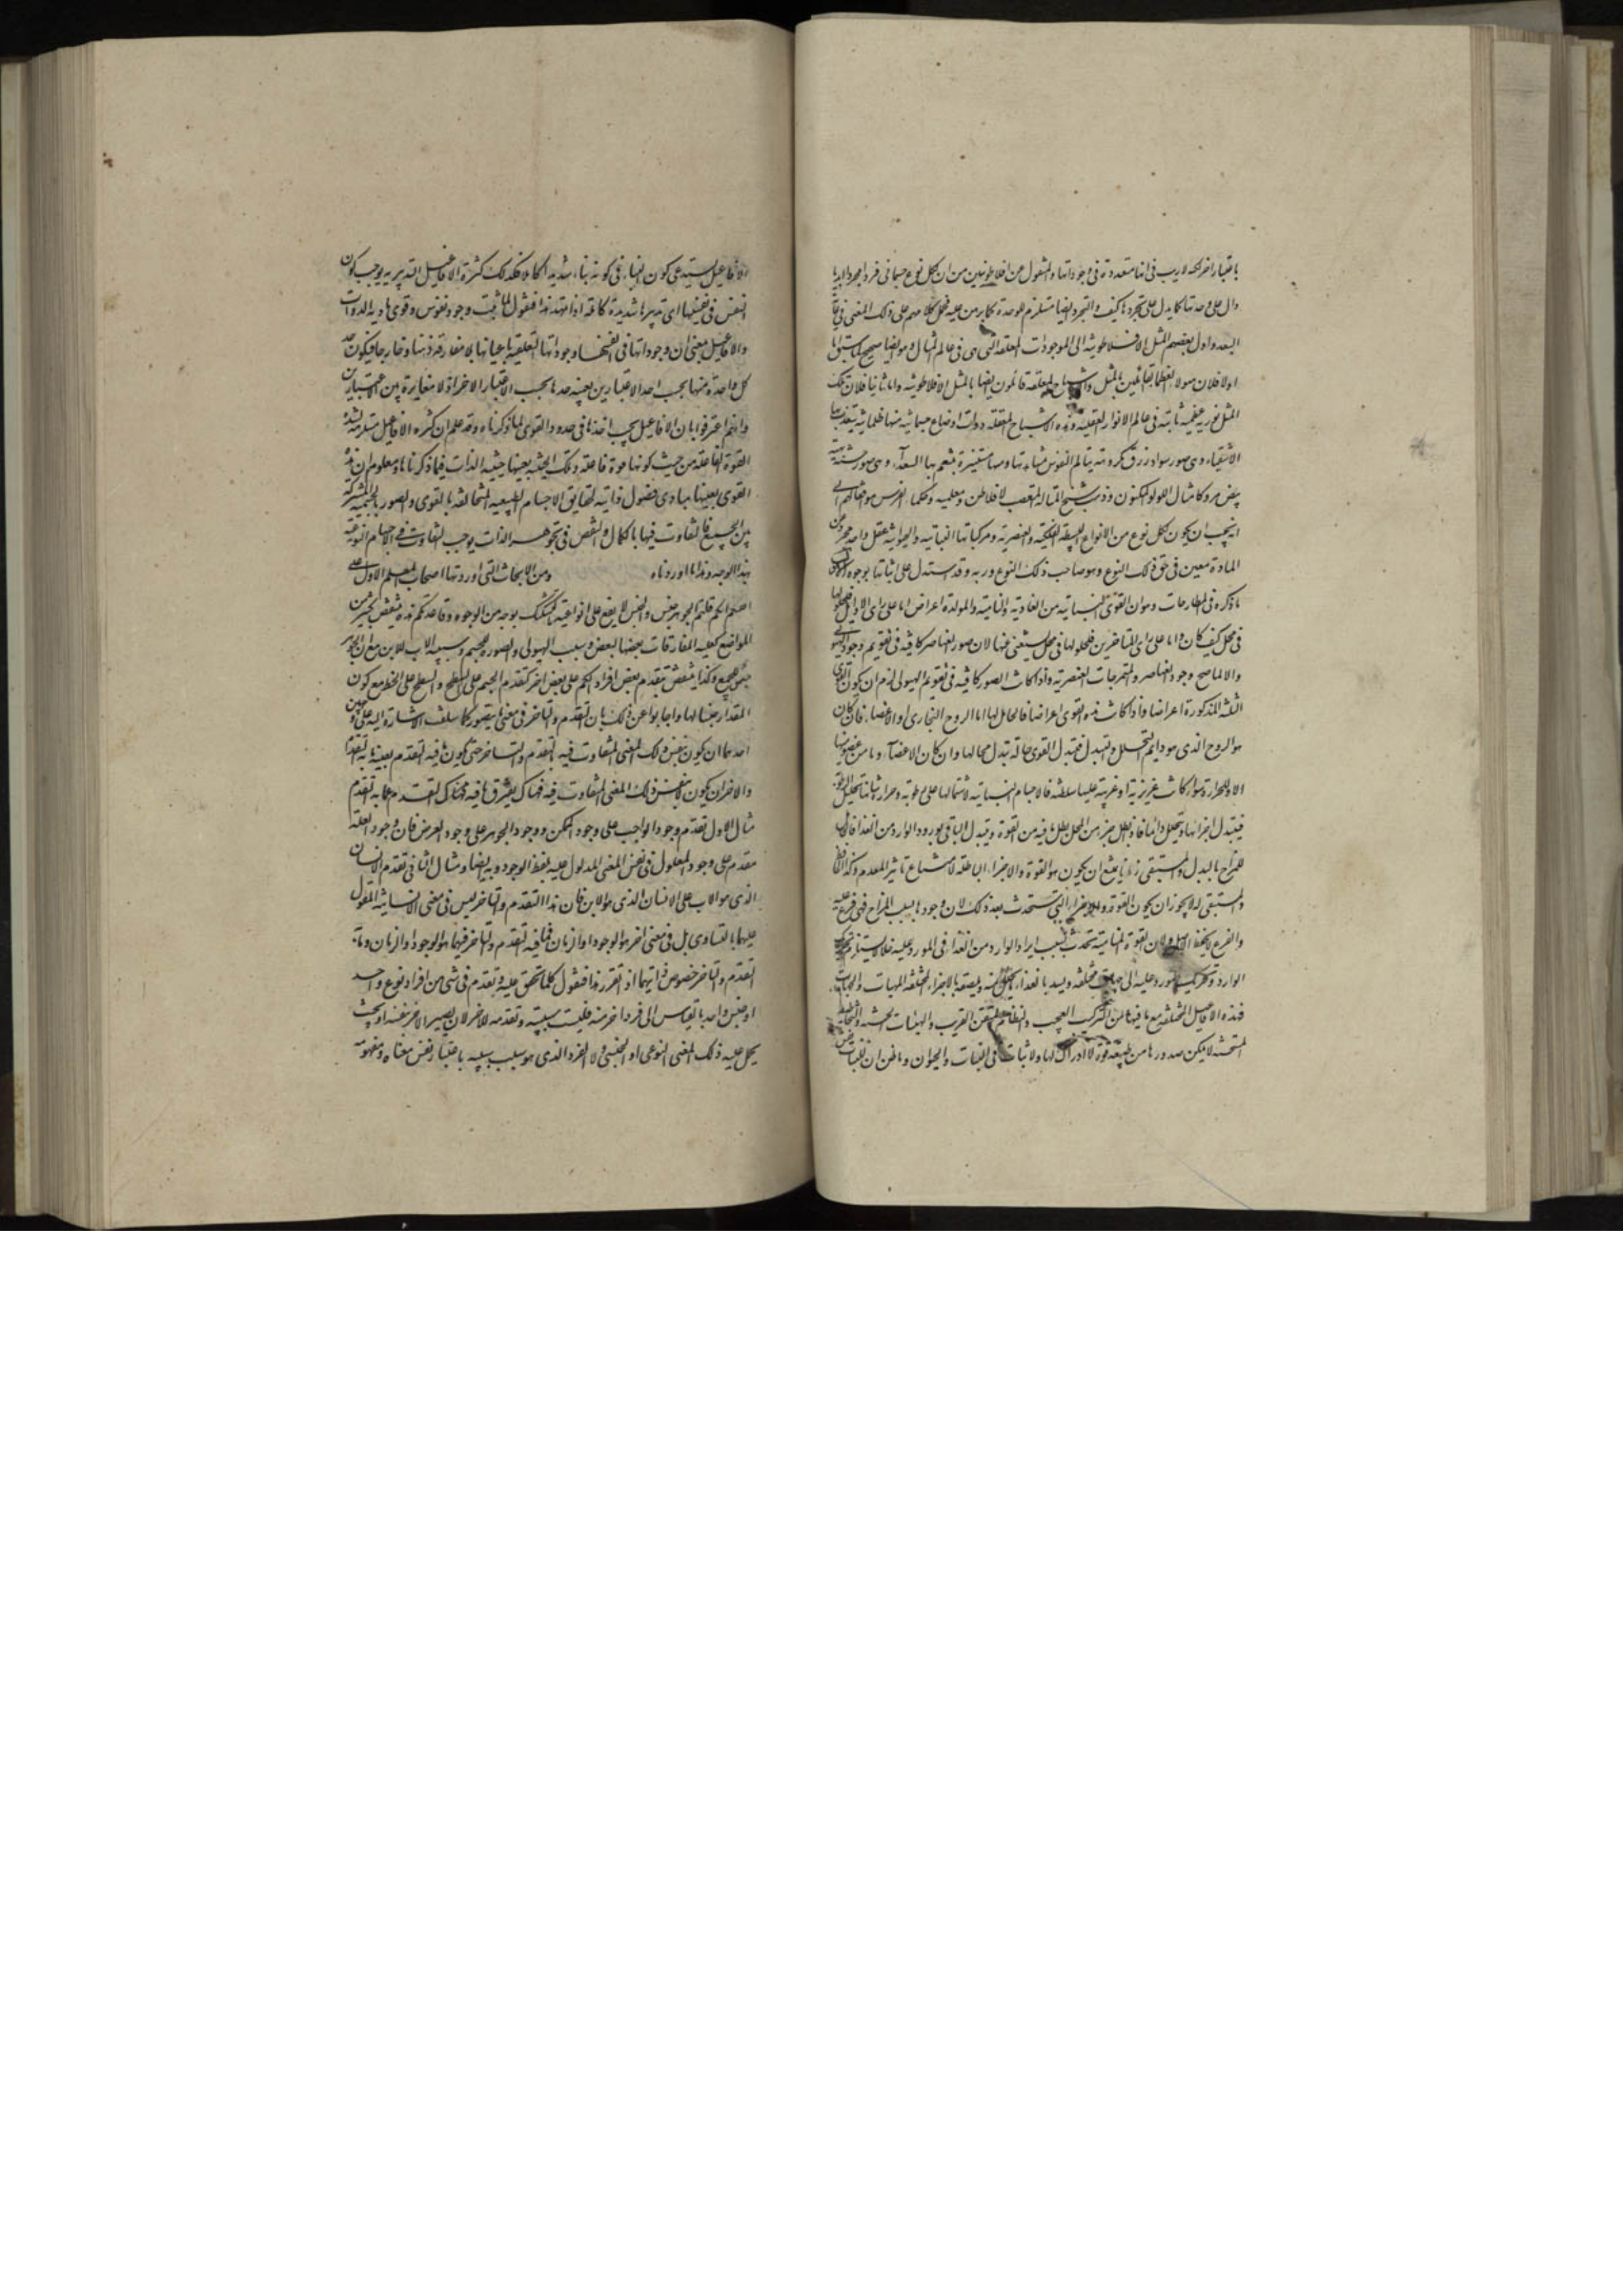 باعتبار اخر لكنه لا ريب في انها متعددة في وجوداتها والمنقول عن افلاطونيين من ان لكل نوع جسماني فردا مجردا ابديا
دال على وحدتها كما يدل على تجردها كيف والتجرد ايضا مستلزم للوحدة كما برهن عليه فحمل كلامهم على ذلك المعنى في غاية
البعد واول بعضهم المثل الافلاطونية الى الموجودات المعلقة التي هي في عالم المثال وهو ايضا صحيح لما سبق اما
اولا فلان هؤلاء العظماء القائلين بالمثل والاشباح المعلقة قائلون ايضا بالمثل الافلاطونية واما ثانيا فلان تلك
المثل نورية عظيمة ثابتة في عالم الانوار العقلية وهذه الاشباح المعلقة ذوات اوضاع جسمانية منها ظلمانية يتعذب بها
الاشقياء وهي صور سواد زرق مكروهة يتالم النفوس بمشاهدتها ومنها مستنيرة يتنعم بها السعداء وهي صور حسنة بهية
بيض مرد كامثال اللؤلؤ المكنون وذهب شيخ المتاله المتعصب لافلاطن ومعلميه وحكماء الفرس موافقا لهم الى
انه يجب ان يكون لكل نوع من الانواع البسيطة الفلكية والعنصرية ومركباتها النباتية والحيوانية عقل واحد مجرد عن
المادة معين في حق ذلك النوع وهو صاحب ذلك النوع وربه وقد استدل على اثباتها بوجوه الاول
ما ذكره في المطارحات وهو ان القوى النباتية من الغاذية والنامية والمولدة اعراض اما على راى الاوائل فلحلولها
في محل كيف كان واما على راى المتاخرين فلحلولها في محل يستغني عنها لان صور العناصر كافية في تقويم وجود الهيولى
والا لما صح وجود العناصر والممتزجات العنصرية واذا كانت الصور كافية في تقويم الهيولى لزم ان يكون القوى
الثلثة المذكورة اعراضا واذا كانت هذه القوى اعراضا فالحامل لها اما الروح البخاري او الاعضاء فان كان
هو الروح الذي هو دايم التحلل والتبدل فتبدل القوى حالة بتبدل محالها وان كان الاعضاء وما من عضو منها
الا وللحرارة سواء كانت غريزية او غريبة عليها سلطنة فالاجسام النباتية لاشتمالها على رطوبة وحرارة شانها تحليل الرطوبة
فيتبدل اجزائها ويتحلل دائما فاذا بطل جزء من المحل بطل ما فيه من القوة ويتبدل الباقي بورود الوارد من الغذا فالحافظ
للمزاج بالبدل والمستبقي زمانا يمتنع ان يكون هو القوة والاجزاء الباطلة لامتناع تاثير المعدوم وكذا الحافظ
والمستبقي له لا يجوز ان يكون القوة والاجزاء التي ستحدث بعد ذلك لان وجودها بسبب المزاج فهي فرع عليه
والفرع لا يحفظ الاصل ولان القوة النامية تحدث بسبب ايراد الوارد من الغذاء في المورد عليه خللا يستلزم تحريك
الوارد وتحريك المورد عليه الى جهات مختلفة ويسد بالغذاء ما يتحلل منه ويلصقه بالاجزاء المختلفة الماهيات والجهات
فهذه الافاعيل المختلفة مع ما فيها من التركيب العجيب والنظام المتقن الغريب والهيئات الحسنة والتخاطيط
المستحسنة لا يمكن صدورها من طبيعة قوة لا ادراك لها ولا ثبات في النبات والحيوان وما ظن ان للنبات نفس
الافاعيل يستدعي كون البناء في كونه بناء شديدا كاملا فكذلك كثرة الافاعيل التدبيرية يوجب كون
النفس في نفسيتها اي تدبيرها شديدة كاملة اذا تمهد هذا فنقول لما ثبت وجود نفوس وقوى هادية الذوات
والافاعيل بمعنى ان وجوداتها في انفسها وجوداتها التعلقية باعيانها بلا مفارقة ذهنا وخارجا فيكون حد
كل واحدة منها بحسب احد الاعتبارين بعينه حدها بحسب الاعتبار الاخر اذ لا مغايرة بين الاعتبارين
وانهم اعترفوا بان الافاعيل يجب اخذها في حدود القوى لما ذكرناه وقد علم ان كثرة الافاعيل مستلزمة لشدة
القوة الفاعلة من حيث كونها قوة فاعلة وتلك الحيثية بعينها حيثية الذات فيما ذكرناها ومعلوم ان هذه
القوى بعينها مبادي فصول ذاتية لحقايق الاجسام الطبيعية المتخالفة بالقوى والصور بالجسمية المشتركة
بين الجميع فالتفاوت فيها بالكمال والنقص في تجوهر الذات يوجب التفاوت في الاجسام النوعية
بهذا الوجه وهذا ما اوردناه ومن الابحاث التي اوردتها اصحاب المعلم الاول على
اصولكم قلتم الجوهر جنس والجنس لا يقع على انواعه بتشكك بوجه من الوجوه وقاعدتكم هذه ينتقض بكثير من
المواضع كعلية المفارقات بعضها لبعض وسبب الهيولى والصورة للجسم وسببية الاب للابن مع ان الجوهر
جنس للجميع وكذا ينتقض بتقدم بعض افراد الكم على بعض اخر كتقدم الجسم على السطح والسطح على الخط مع كون
المقدار جنسا لها واجابوا عن ذلك بان التقدم والتاخر في معنى ما يتصور كما سلف الاشارة اليه على وجهين
احدهما ان يكون بنفس ذلك المعنى المتفاوت فيه بالتقدم والتاخر حتى يكون ما فيه التقدم بعينه ما به التقدم
والاخر ان يكون لا بنفس ذلك المعنى المتفاوت فيه فهناك يفترق ما فيه التقدم عما به التقدم
مثال الاول تقدم وجود الواجب على وجود الممكن ووجود الجوهر على وجود العرض فان وجود العلة
متقدم على وجود المعلول في نفس المعنى المدلول عليه بلفظ الوجود وبه ايضا ومثال الثاني تقدم الانسان
الذي هو الاب على الانسان الذي هو الابن فان هذا التقدم والتاخر ليس في معنى الانسانية المقول
عليهما بالتساوي بل في معنى اخر هو الوجود او الزمان فما فيه التقدم والتاخر فيهما هو الوجود او الزمان وما به
التقدم والتاخر خصوص ذاتيهما اذا تقرر هذا فنقول كلما تحقق علية وتقدم في شئ من افراد نوع واحد
او جنس واحد بالقياس الى فرد اخر منه فليست سببيته وتقدمه للاخر لان يصير الاخر نفسه او بحيث
يحمل عليه ذلك المعنى النوعي او الجنسي ولا الفرد الذي هو سبب سببيته باعتبار نفس معناه ومفهومه